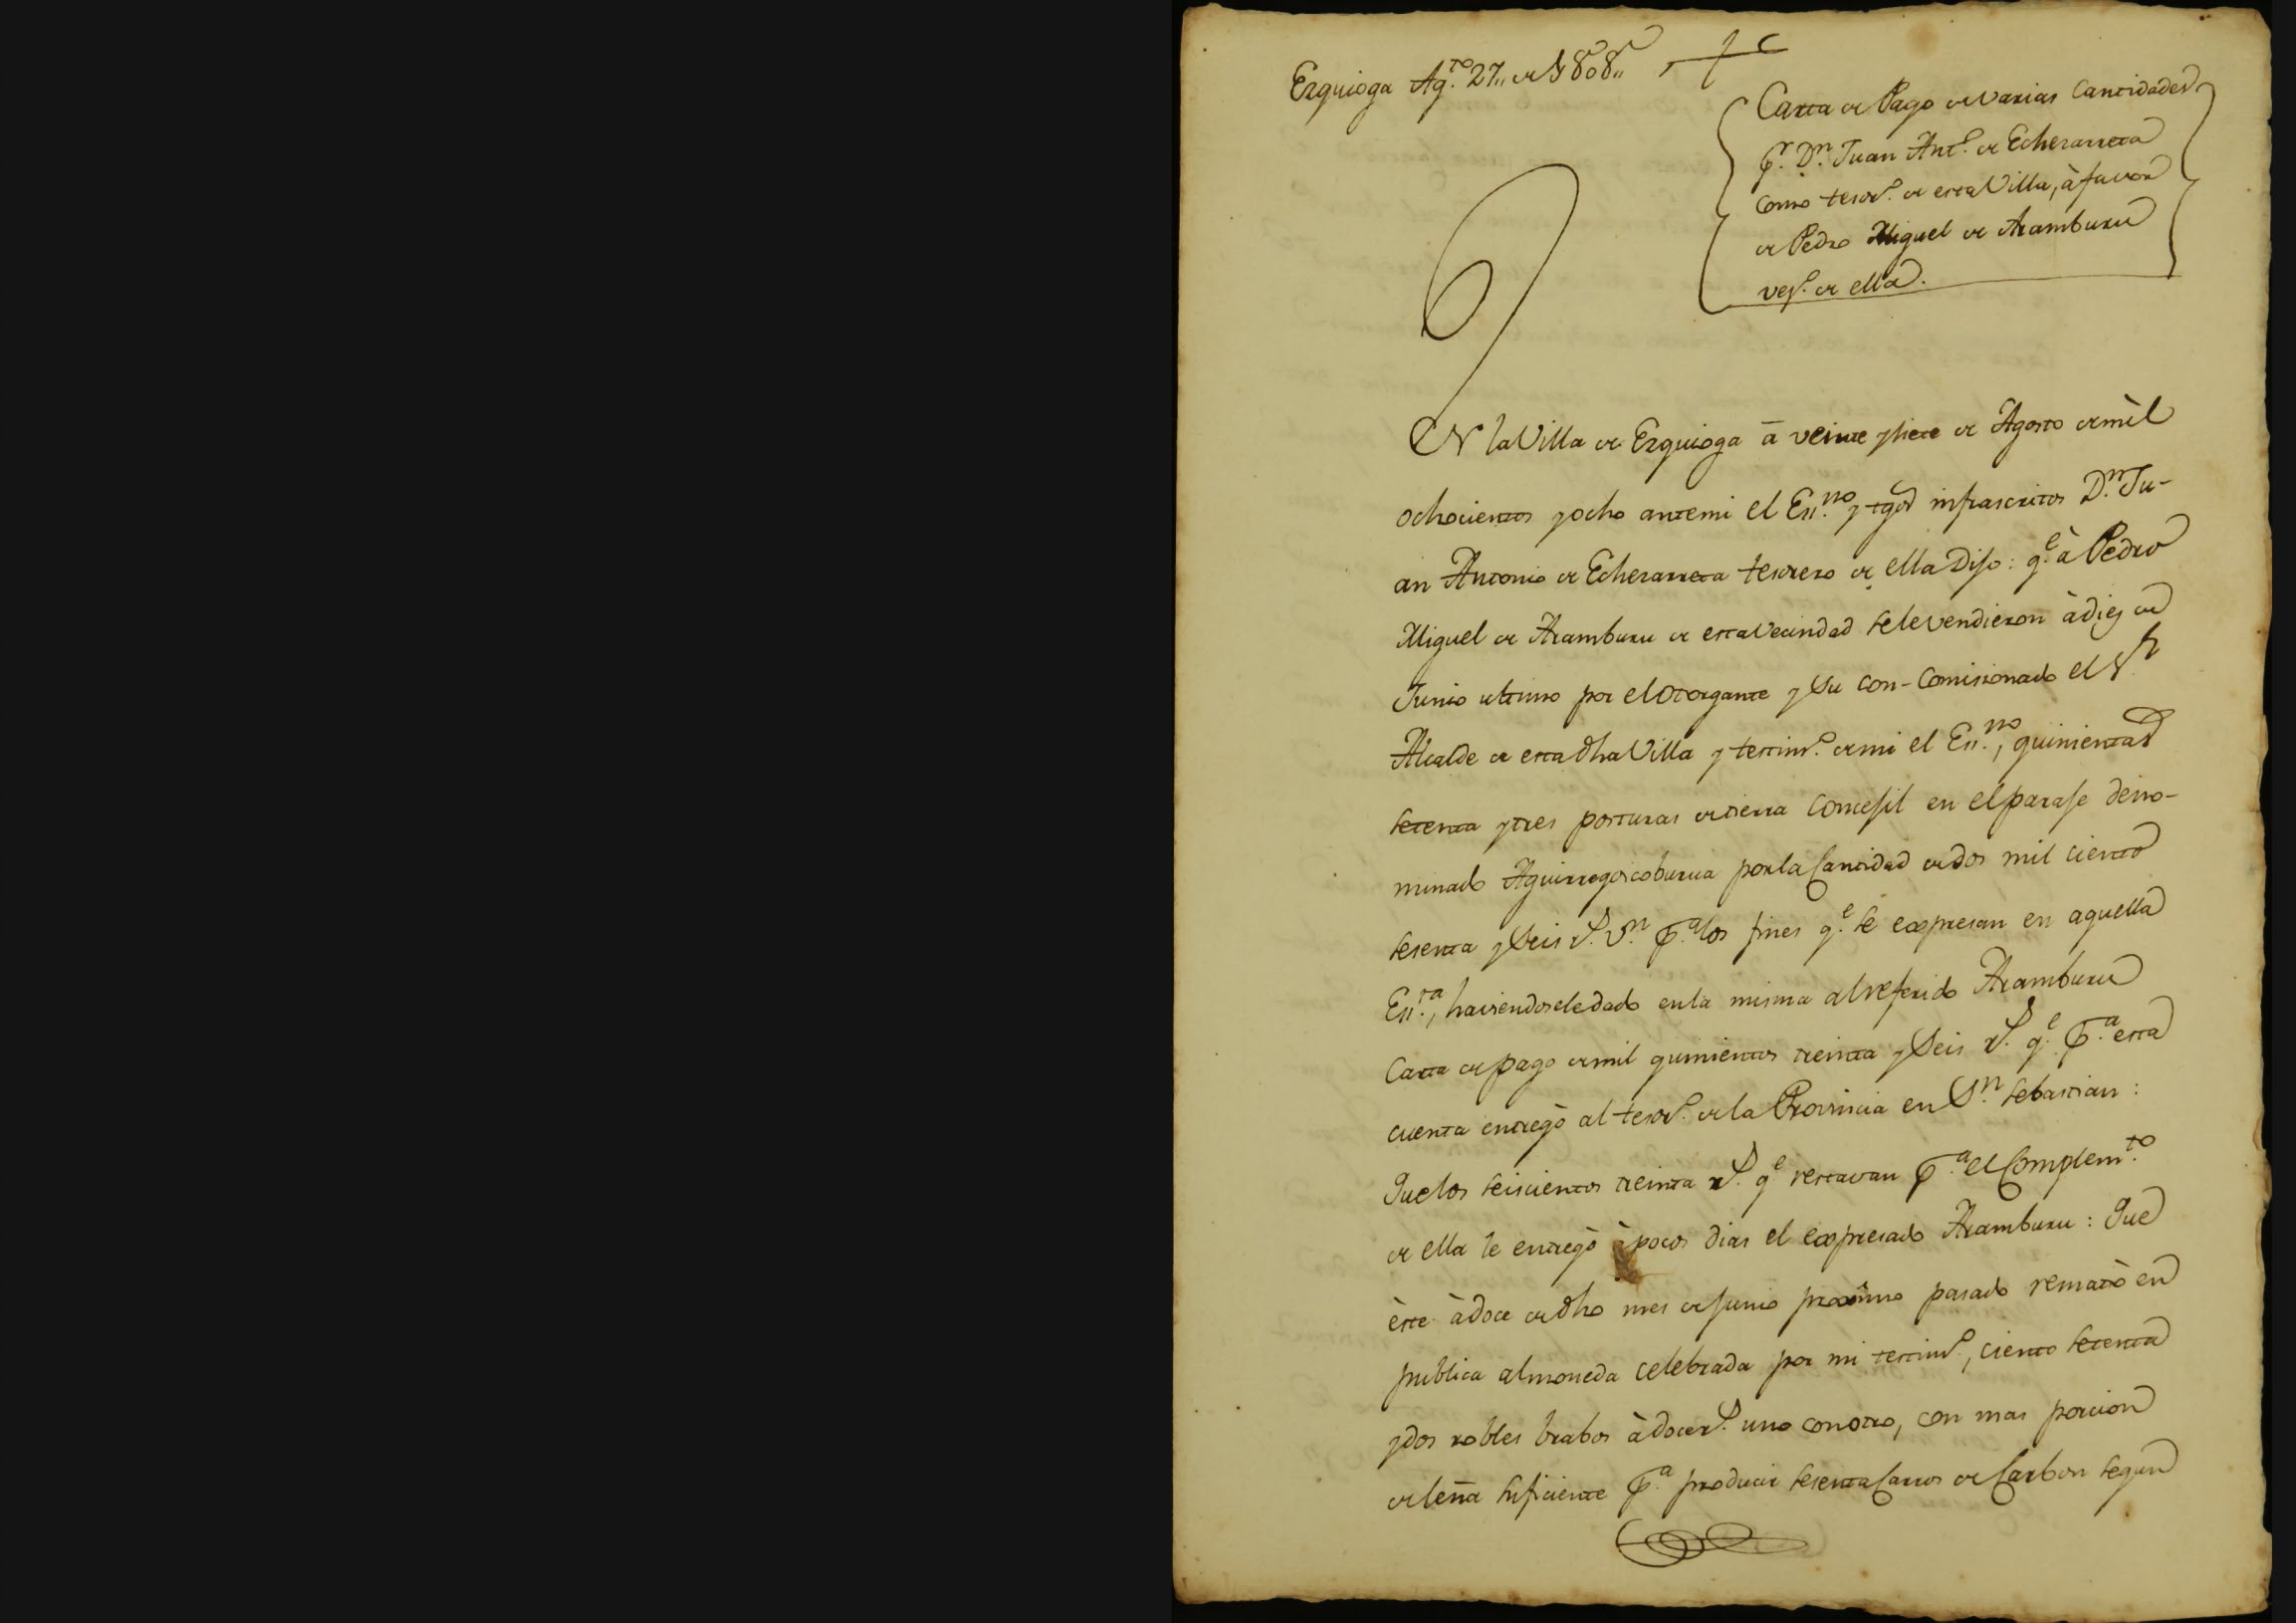 Ezquioga Ag.to 27,, de 1808,,
Carta de Pago de varias Cantidades
p.r D.n Juan Ant.o de Echezarreta
como tesor.o de esta Villa, à favor
de Pedro Miguel de Aramburu
vez.o de ella.
EN la Villa de Ezquioga à veinte y siete de Agosto de mil
ochocientos y ocho ante mi el Ess.no y tgos infrascritos D.n Ju-
an Antonio de Echezarreta tesorero de ella Dijo: q.e à Pedro
Miguel de Aramburu de esta Vecindad se le vendieron à diez de
Junio ultimo por el otorgante y su con-comisionado el S.r
Alcalde de esta dha Villa y testim.o de mi el Ess.no, quinientas
setenta y tres posturas de tierra Concejil en el paraje deno-
minado Aguirregoicoburua por la Cantidad de dos mil ciento
sesenta y seis r.s v.n p.a los fines q.e se expresan en aquella
Ess.ra, haviendosele dado en la misma al referido Aramburu
Carta de pago de mil quinientos treinta y seis r.s q.e p.a esta
cuenta entregò al tesor.o de la Provincia en S.n Sebastian:
Que los seiscientos treinta r.s q.e restavan p.a el Complem.to
de ella le entregò à pocos dias el expresado Aramburu: Que
èste à doce de dho mes de Junio proximo pasado rematò en
publica almoneda celebrada por mi testim.o, ciento setenta
y dos robles brabos à doce r.s uno con otro, con mas porcion
de leña suficiente p.a producir sesenta Carros de Carbon segun